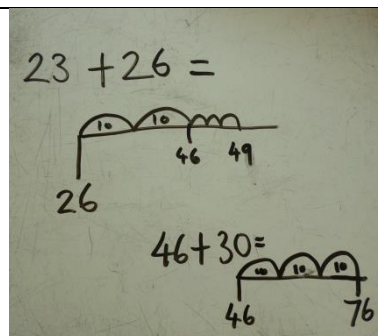 23 + 26 =
10 10
46 49
26
46 + 30 =
10 10 10
46 76